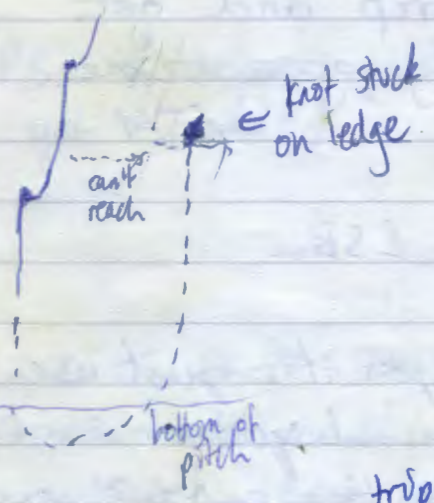 ← knot stuck
on ledge
can't
reach
bottom of
pitch
trip